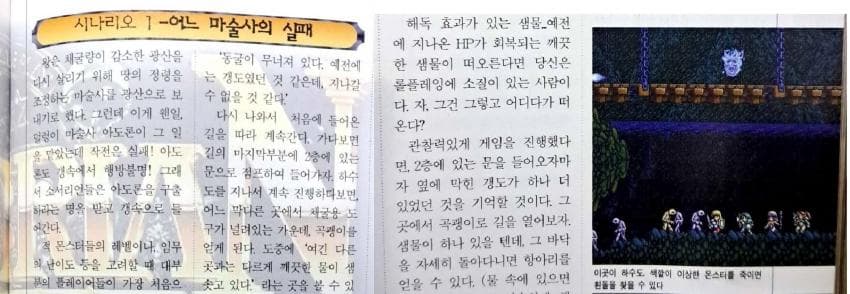 시나리오 1-어느 마술사의 실패
왕은 채굴량이 감소한 광산을
다시 살리기 위해 땅의 정령을
조정하는 마술사를 광산으로 보
내기로 했다. 그런데 이게 웬일,
덜렁이 마술사 아도론이 그 일
을 맡았는데 작전은 실패! 아도
론도 갱속에서 행방불명! 그래
서 소서리언들은 아도론을 구출
하라는 명을 받고 갱속으로 들
어간다.
적 몬스터들의 레벨이나, 임무
의 난이도 등을 고려할 때 대부
분의 플레이어들이 가장 처음으
'동굴이 무너져 있다. 예전에
는 갱도였던 것 같은데, 지나갈
수 없을 것 같다.'
다시 나와서 처음에 들어온
길을 따라 계속간다. 가다보면
길의 마지막부분에 2층에 있는
문으로 점프하여 들어가자. 하수
도를 지나서 계속 진행하다보면,
어느 막다른 곳에서 채굴용 도
구가 널려있는 가운데, 곡괭이를
얻게 된다. 도중에 '여긴 다른
곳과는 다르게 깨끗한 물이 샘
솟고 있다.' 라는 곳을 볼 수 있
해독 효과가 있는 샘물_예전
에 지나온 HP가 회복되는 깨끗
한 샘물이 떠오른다면 당신은
롤플레잉에 소질이 있는 사람이
다. 자, 그건 그렇고 어디다가 떠
온다?
관찰력있게 게임을 진행했다
면, 2층에 있는 문을 들어오자마
자 옆에 막힌 갱도가 하나 더
있었던 것을 기억할 것이다. 그
곳에서 곡괭이로 길을 열어보자.
샘물이 하나 있을 텐데, 그 바닥
을 자세히 돌아다니면 항아리를
얻을 수 있다. (물 속에 있으면
이곳이 하수도. 색깔이 이상한 몬스터를 죽이면
흰돌을 찾을 수 있다